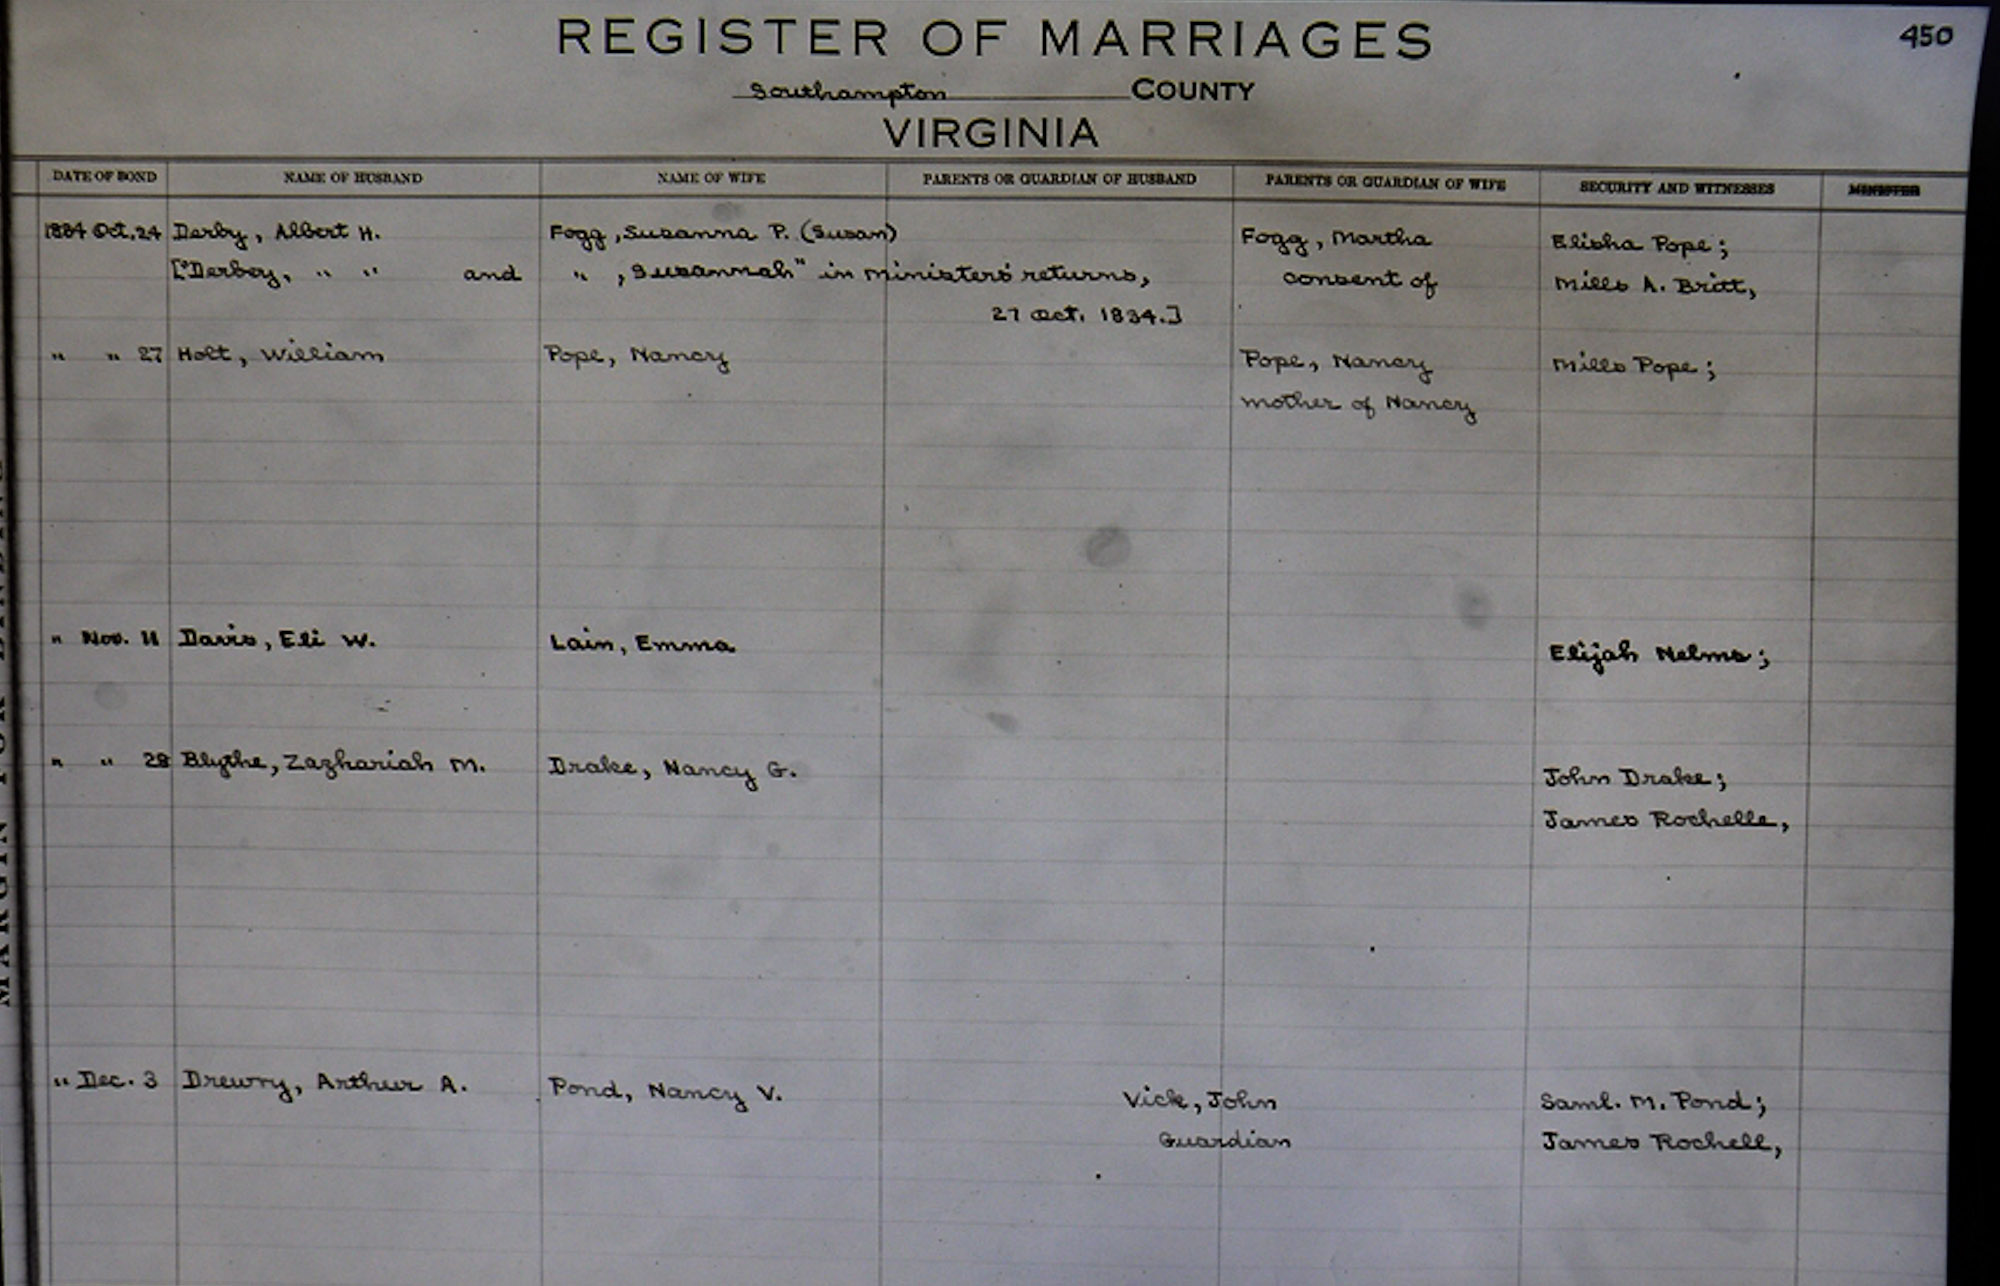 450
REGISTER OF MARRIAGES
Southampton COUNTY
VIRGINIA
DATE OF BOND NAME OF HUSBAND NAME OF WIFE PARENTS OR GUARDIAN OF HUSBAND PARENTS OR GUARDIAN OF WIFE SECURITY AND WITNESSES MINISTER
1834 Oct. 24 Derby, Albert H. Fogg, Susanna P. (Susan) Fogg, Martha Elisha Pope;
["Derbey, " " and " , Susannah" in ministers' returns, consent of Mills A. Britt,
27 Oct. 1834.]
" " 27 Holt, William Pope, Nancy Pope, Nancy Mills Pope;
mother of Nancy
" Nov. 11 Davis, Eli W. Lain, Emma Elijah Nelms;
" " 28 Blythe, Zazhariah M. Drake, Nancy G. John Drake;
James Rochelle,
" Dec. 3 Drewry, Arthur A. Pond, Nancy V. Vick, John Saml. M. Pond;
Guardian James Rochell,
MARGIN FOR BINDING